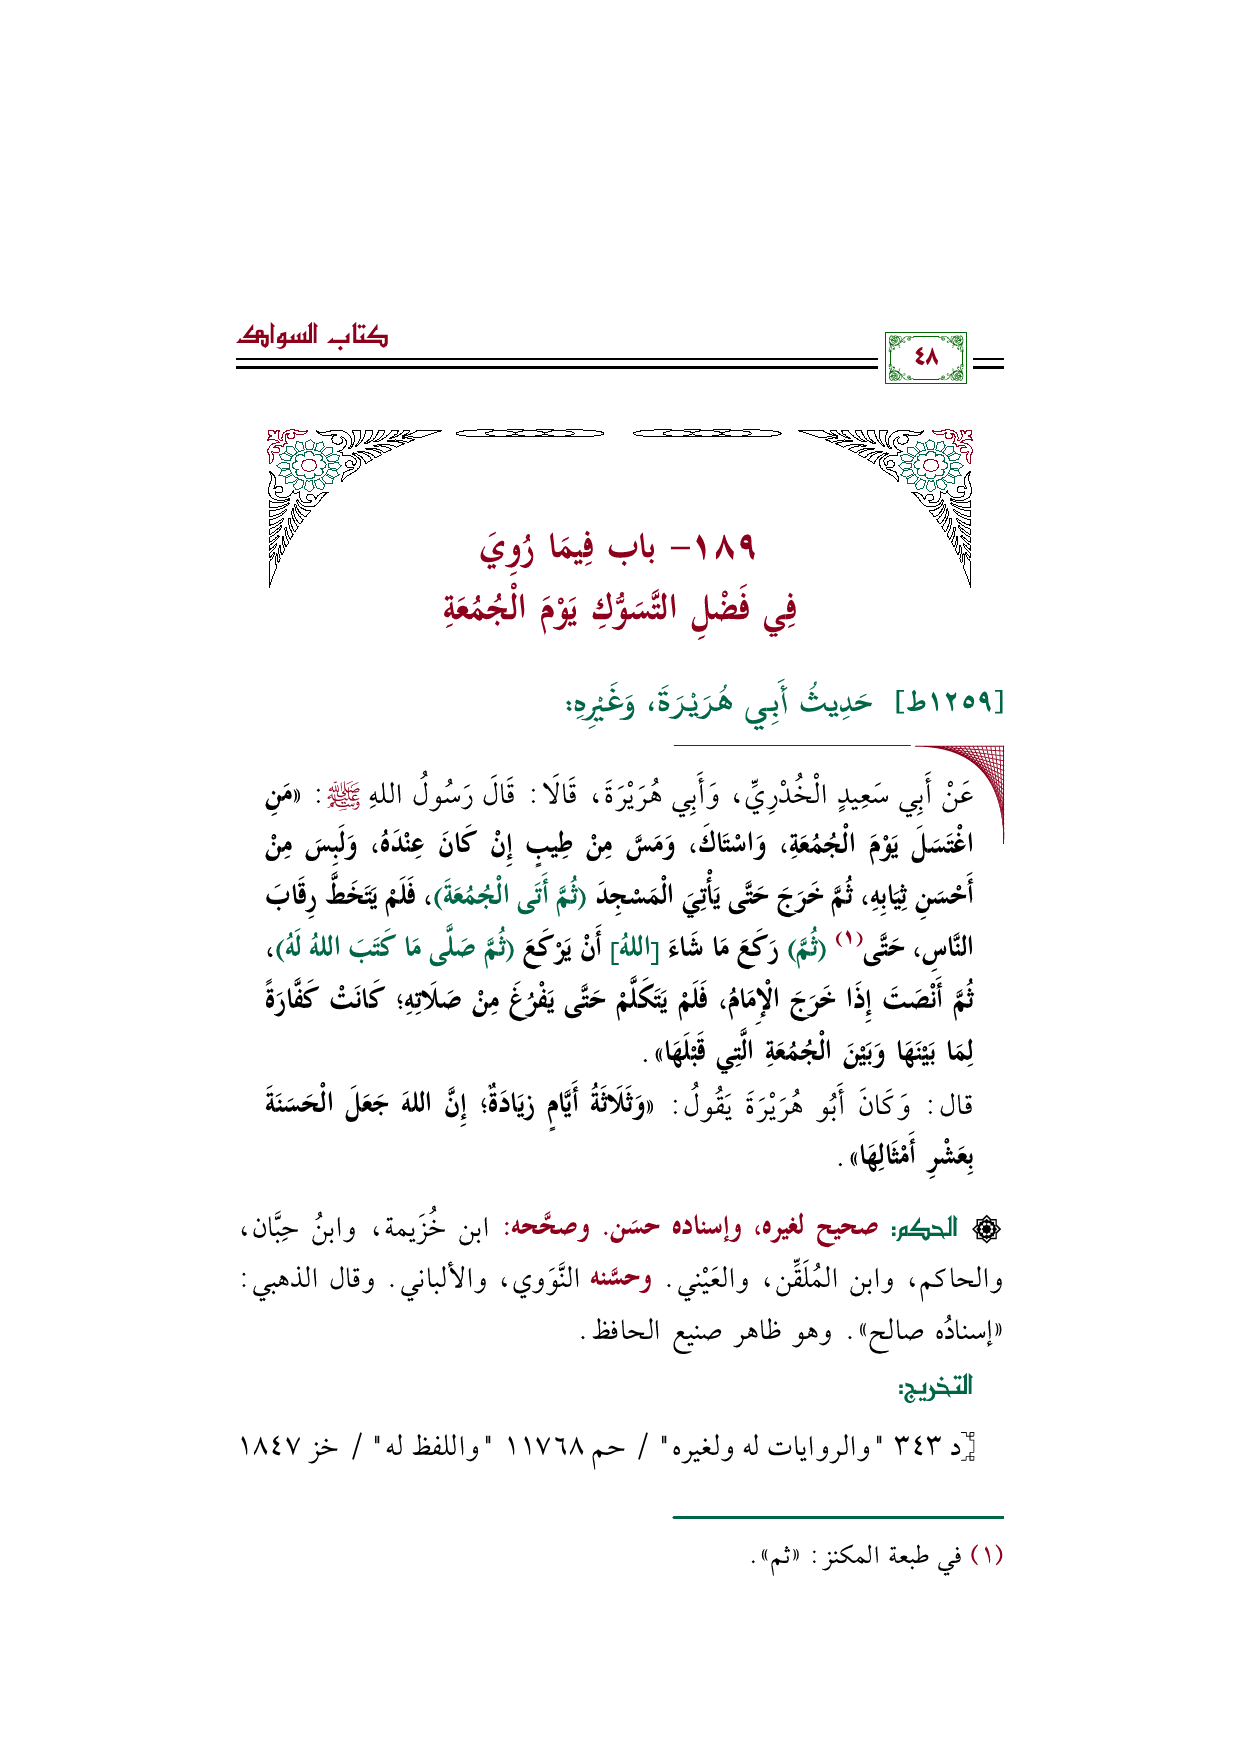 كتاب السواك
٤٨
١٨٩- باب فِيمَا رُوِيَ
فِي فَضْلِ التَّسَوُّكِ يَوْمَ الْجُمُعَةِ
[١٢٥٩ط] حَدِيثُ أَبِي هُرَيْرَةَ، وَغَيْرِهِ:
عَنْ أَبِي سَعِيدٍ الْخُدْرِيِّ، وَأَبِي هُرَيْرَةَ، قَالَا: قَالَ رَسُولُ اللهِ ﷺ: «مَنِ
اغْتَسَلَ يَوْمَ الْجُمُعَةِ، وَاسْتَاكَ، وَمَسَّ مِنْ طِيبٍ إِنْ كَانَ عِنْدَهُ، وَلَبِسَ مِنْ
أَحْسَنِ ثِيَابِهِ، ثُمَّ خَرَجَ حَتَّى يَأْتِيَ الْمَسْجِدَ (ثُمَّ أَتَى الْجُمُعَةَ)، فَلَمْ يَتَخَطَّ رِقَابَ
النَّاسِ، حَتَّى(١) (ثُمَّ) رَكَعَ مَا شَاءَ [اللهُ] أَنْ يَرْكَعَ (ثُمَّ صَلَّى مَا كَتَبَ اللهُ لَهُ)،
ثُمَّ أَنْصَتَ إِذَا خَرَجَ الْإِمَامُ، فَلَمْ يَتَكَلَّمْ حَتَّى يَفْرُغَ مِنْ صَلَاتِهِ؛ كَانَتْ كَفَّارَةً
لِمَا بَيْنَهَا وَبَيْنَ الْجُمُعَةِ الَّتِي قَبْلَهَا».
قال: وَكَانَ أَبُو هُرَيْرَةَ يَقُولُ: «وَثَلَاثَةُ أَيَّامٍ زِيَادَةٌ؛ إِنَّ اللهَ جَعَلَ الْحَسَنَةَ
بِعَشْرِ أَمْثَالِهَا».
الحكم: صحيح لغيره، وإسناده حسَن. وصحَّحه: ابن خُزَيمة، وابنُ حِبَّان،
والحاكم، وابن المُلَقِّن، والعَيْني. وحسَّنه النَّوَوي، والألباني. وقال الذهبي:
«إسنادُه صالح». وهو ظاهر صنيع الحافظ.
التخريج:
[د ٣٤٣ "والروايات له ولغيره" / حم ١١٧٦٨ "واللفظ له" / خز ١٨٤٧
(١) في طبعة المكنز: «ثم».